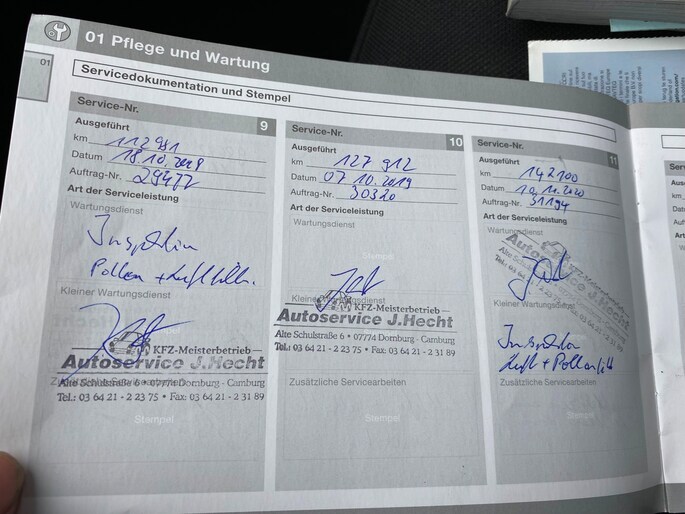 01 Pflege und Wartung
01
Servicedokumentation und Stempel
Service-Nr. 9
Ausgeführt
km 112981
Datum 18.10.2018
Auftrag-Nr. 29477
Art der Serviceleistung
Wartungsdienst
Inspektion
Pollen + Luftfilter
Kleiner Wartungsdienst
KFZ-Meisterbetrieb
Autoservice J.Hecht
Alte Schulstraße 6 • 07774 Dornburg - Camburg
Tel.: 03 64 21 - 2 23 75 • Fax: 03 64 21 - 2 31 89
Stempel
Service-Nr. 10
Ausgeführt
km 127 912
Datum 07 10.2019
Auftrag-Nr. 30320
Art der Serviceleistung
Wartungsdienst
Stempel
Kleiner Wartungsdienst
KFZ-Meisterbetrieb
Autoservice J.Hecht
Alte Schulstraße 6 • 07774 Dornburg - Camburg
Tel.: 03 64 21 - 2 23 75 • Fax: 03 64 21 - 2 31 89
Zusätzliche Servicearbeiten
Stempel
Service-Nr. 11
Ausgeführt
km 142100
Datum 10.11.2020
Auftrag-Nr. 31194
Art der Serviceleistung
Wartungsdienst
KFZ-Meisterbetrieb
Autoservice J.Hecht
Kleiner Wartungsdienst
Inspektion
Luft + Pollenfilt
Zusätzliche Servicearbeiten
Stempel